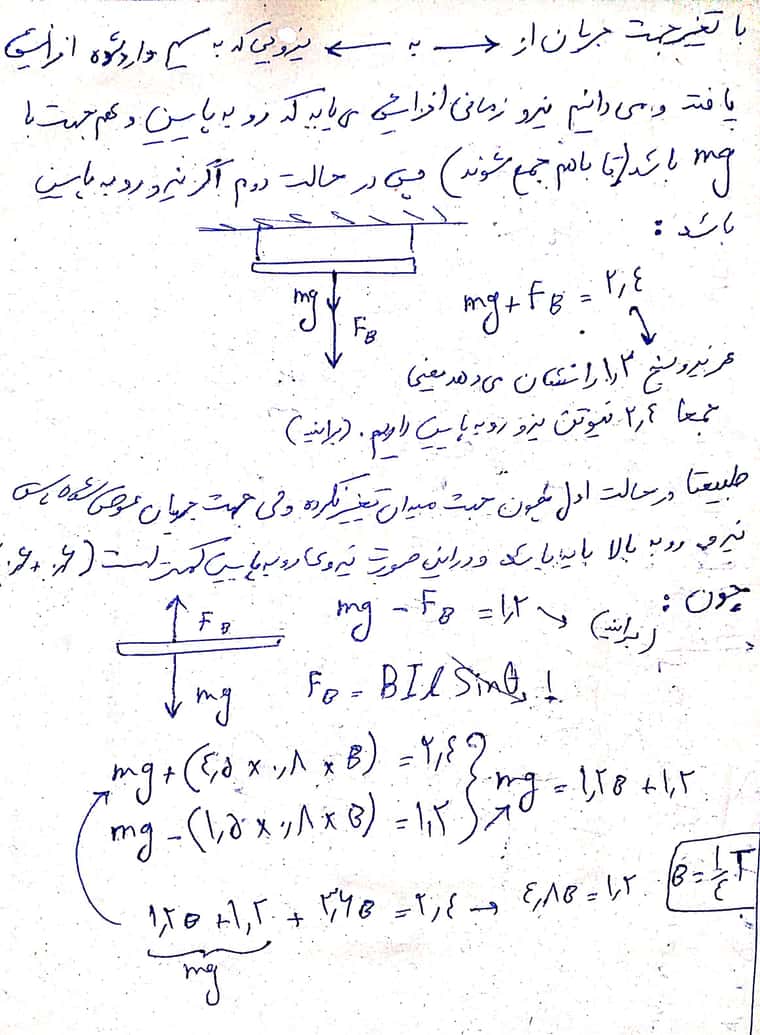 با تغییر جهت جریان از → به ← نیرویی که به سیم وارد شده افزایش
یافت و می دانیم نیرو زمانی افزایش می یابد که رو به پایین و هم جهت با
mg باشد (تا باهم جمع شوند) پس در حالت دوم اگر نیرو رو به پایین
باشد :
mg
F_B
mg + F_B = ۲,۴
هر نیروسنج ۱,۲ را نشان می دهد یعنی
جمعا ۲,۴ نیوتن نیرو رو به پایین داریم. (برآیند)
طبیعتا در حالت اول چون جهت میدان تغییر نکرده ولی جهت جریان عوض شده پس
نیرو رو به بالا باید باشد و در این صورت نیروی رو به پایین کمتر است (۰,۶+۰,۶)
چون :
F_B
mg
mg - F_B = ۱,۲ → (برآیند)
F_B = BIl Sinθ, 1
mg + (۴,۵ × ۰,۸ × B) = ۲,۴
mg - (۱,۵ × ۰,۸ × B) = ۱,۲
mg = ۱,۲B + ۱,۲
۱,۲B + ۱,۲ + ۳,۶B = ۲,۴ → ۴,۸B = ۱,۲
B = ۱/۴ T
mg